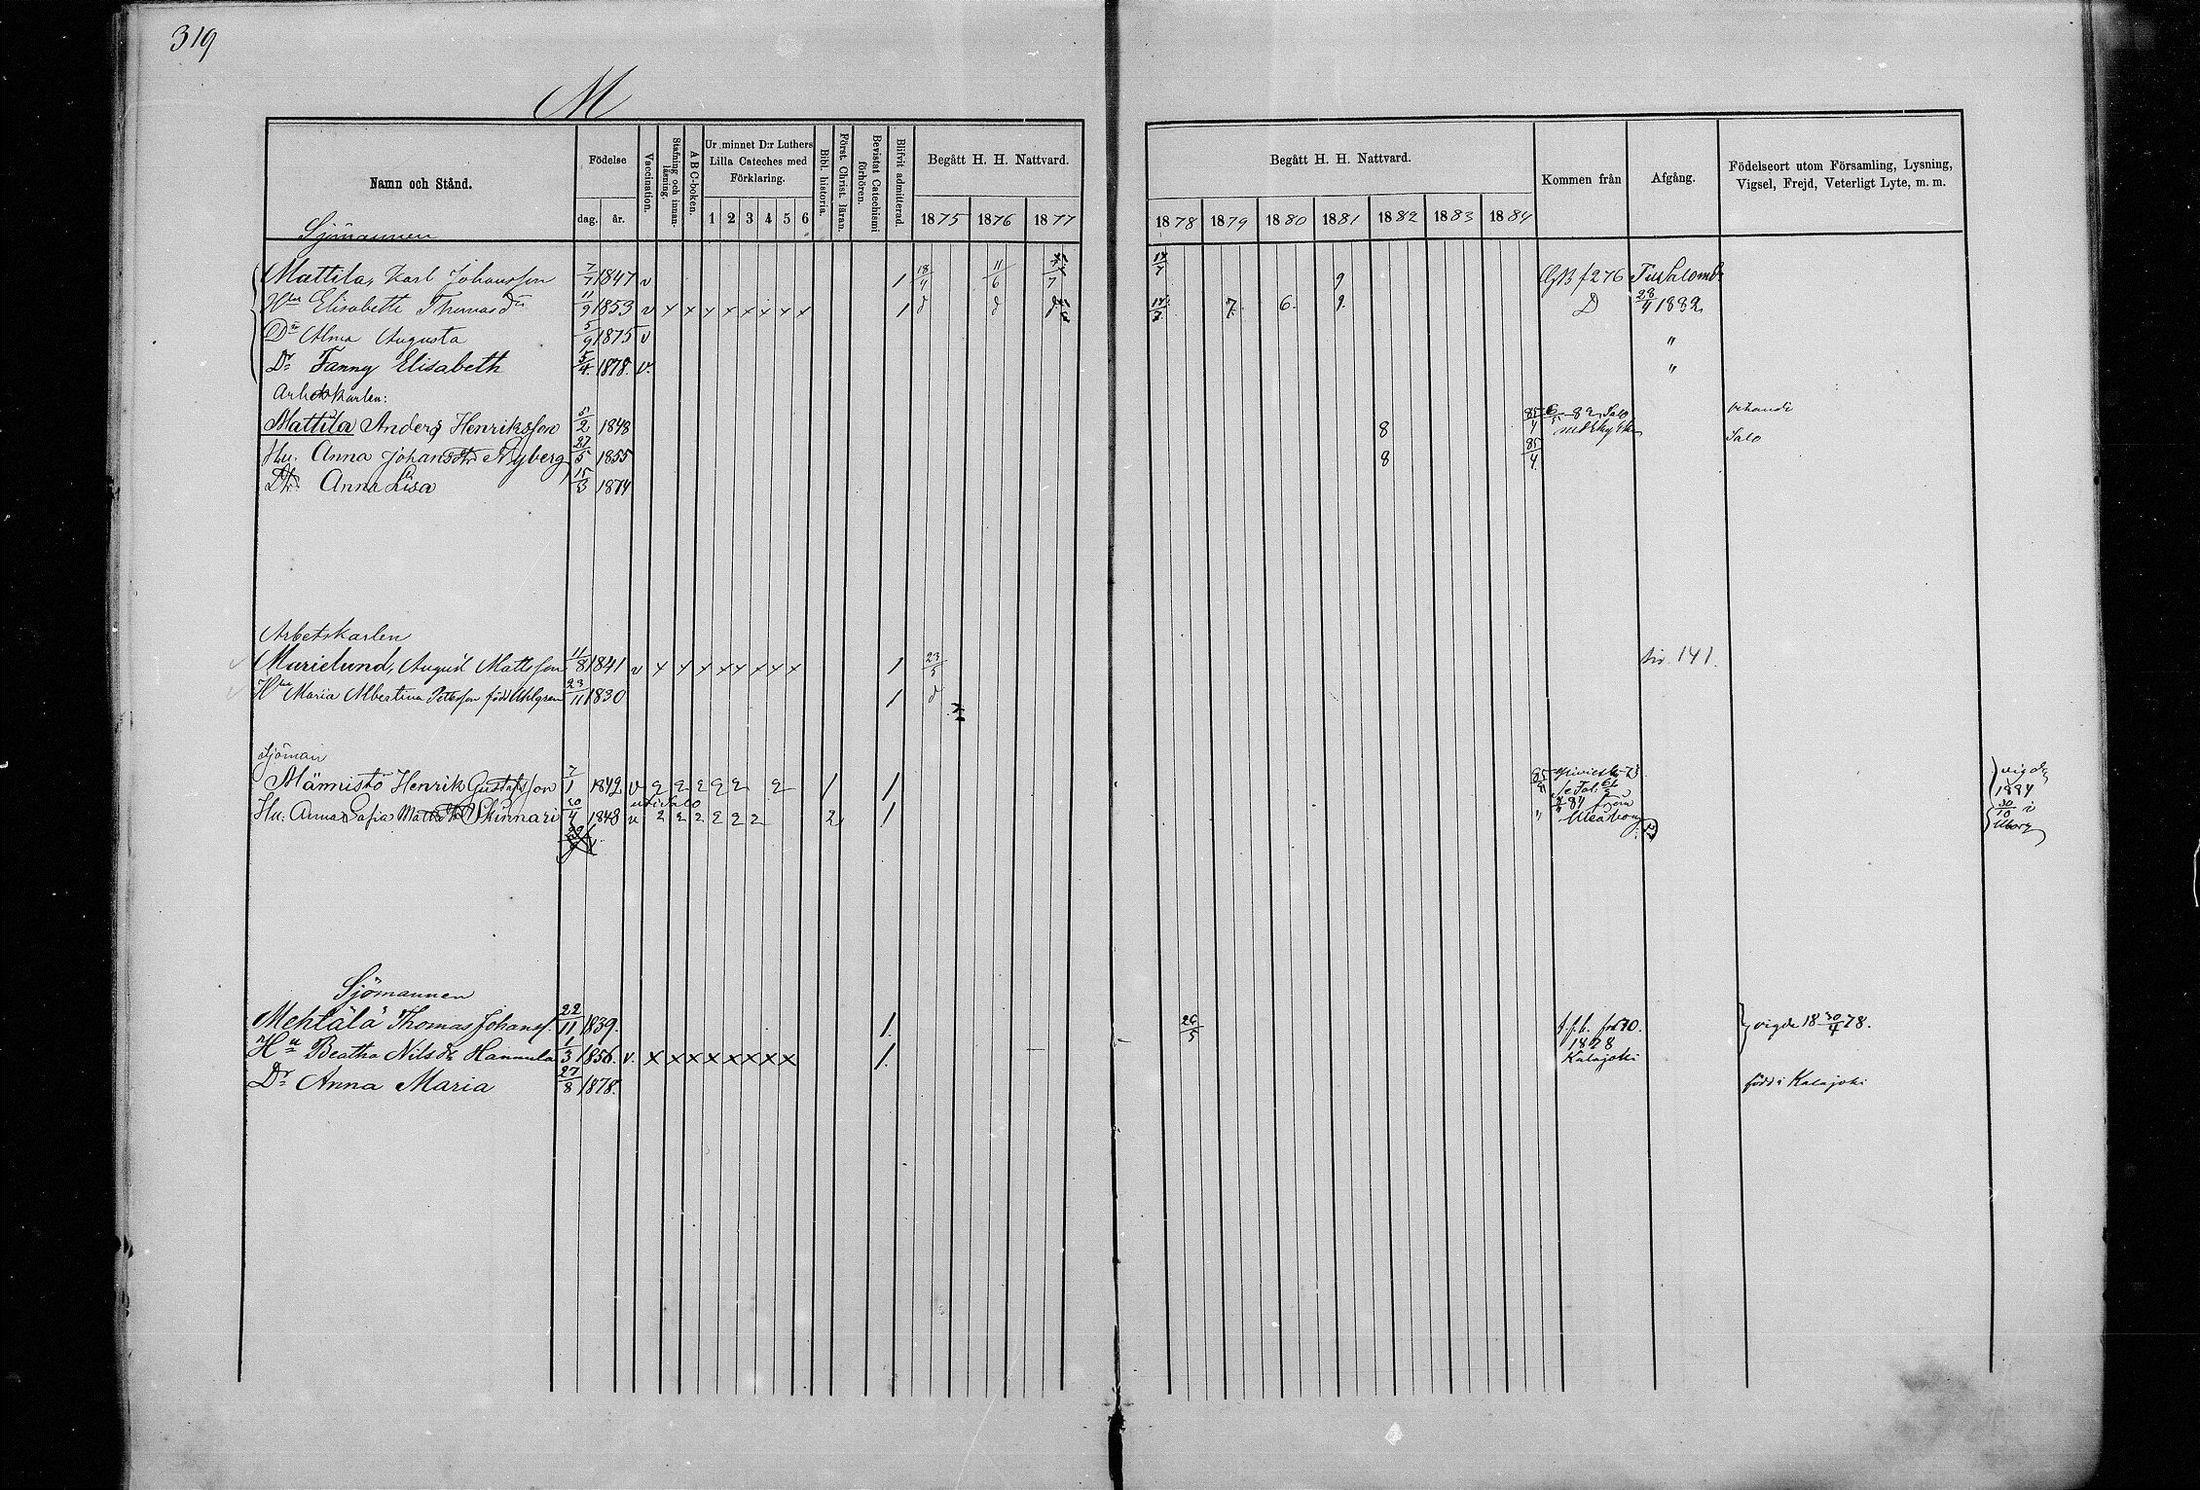 319
M
Namn och Stånd.
Födelse
dag. år.
Vaccination.
Stafning och innanläsning.
A B C-boken.
Ur minnet D:r Luthers Lilla Cateches med Förklaring.
1 2 3 4 5 6
Bibl. historia.
Först. Christ. läran.
Bevistat Catechismi förhören.
Blifvit admitterad.
Begått H. H. Nattvard.
1875 1876 1877
Begått H. H. Nattvard.
1878 1879 1880 1881 1882 1883 1884
Kommen från
Afgång.
Födelseort utom Församling, Lysning, Vigsel, Frejd, Veterligt Lyte, m. m.
Sjömannen
Mattila, Karl Johansson 7/7 1847 v 1 18/4 11/6 9 f 276
Hu Elisabeth Thomasdr 11/9 1853 v x x x x x x x x 1 d d 7. 6. 9. D 28/4 1882
Dr Alma Augusta 5/9 1875 v "
Dr Fanny Elisabeth 5/4 1878. v. "
Arbetskarlen:
Mattila Anders Henriksson 5/2 1848 8 85/4 82 Salo
Hu. Anna Johansdtr Nyberg 27/5 1855 8 85/4 Salo
Dtr Anna Lisa 15/3 1874
Arbetskarlen
Marielund, August Mattsson 11/8 1841 v x x x x x x x x 1 23/5 141.
Hu Maria Albertina Petersson född Uhlgren 23/11 1830 1 d
Sjöman
Männistö Henrik Gustafsson 7/1 1842 v 2 2 2 2 2 2 1 1 85/4 vigde 1884
Hu. Anna Sofia Skinnari 30/4 1848 v 2 2 2 2 2 2 2 1 " Uleåborg 30/10 i Uborg
Sjömannen
Mehtälä Thomas Johanss. 22/11 1839. 1. 26/5 1878 vigde 18 30/4 78.
Hu Beatha Nilsdr Hannula 1/3 1856. v. x x x x x x x x 1. Kalajoki
Dr Anna Maria 27/8 1878. född i Kalajoki